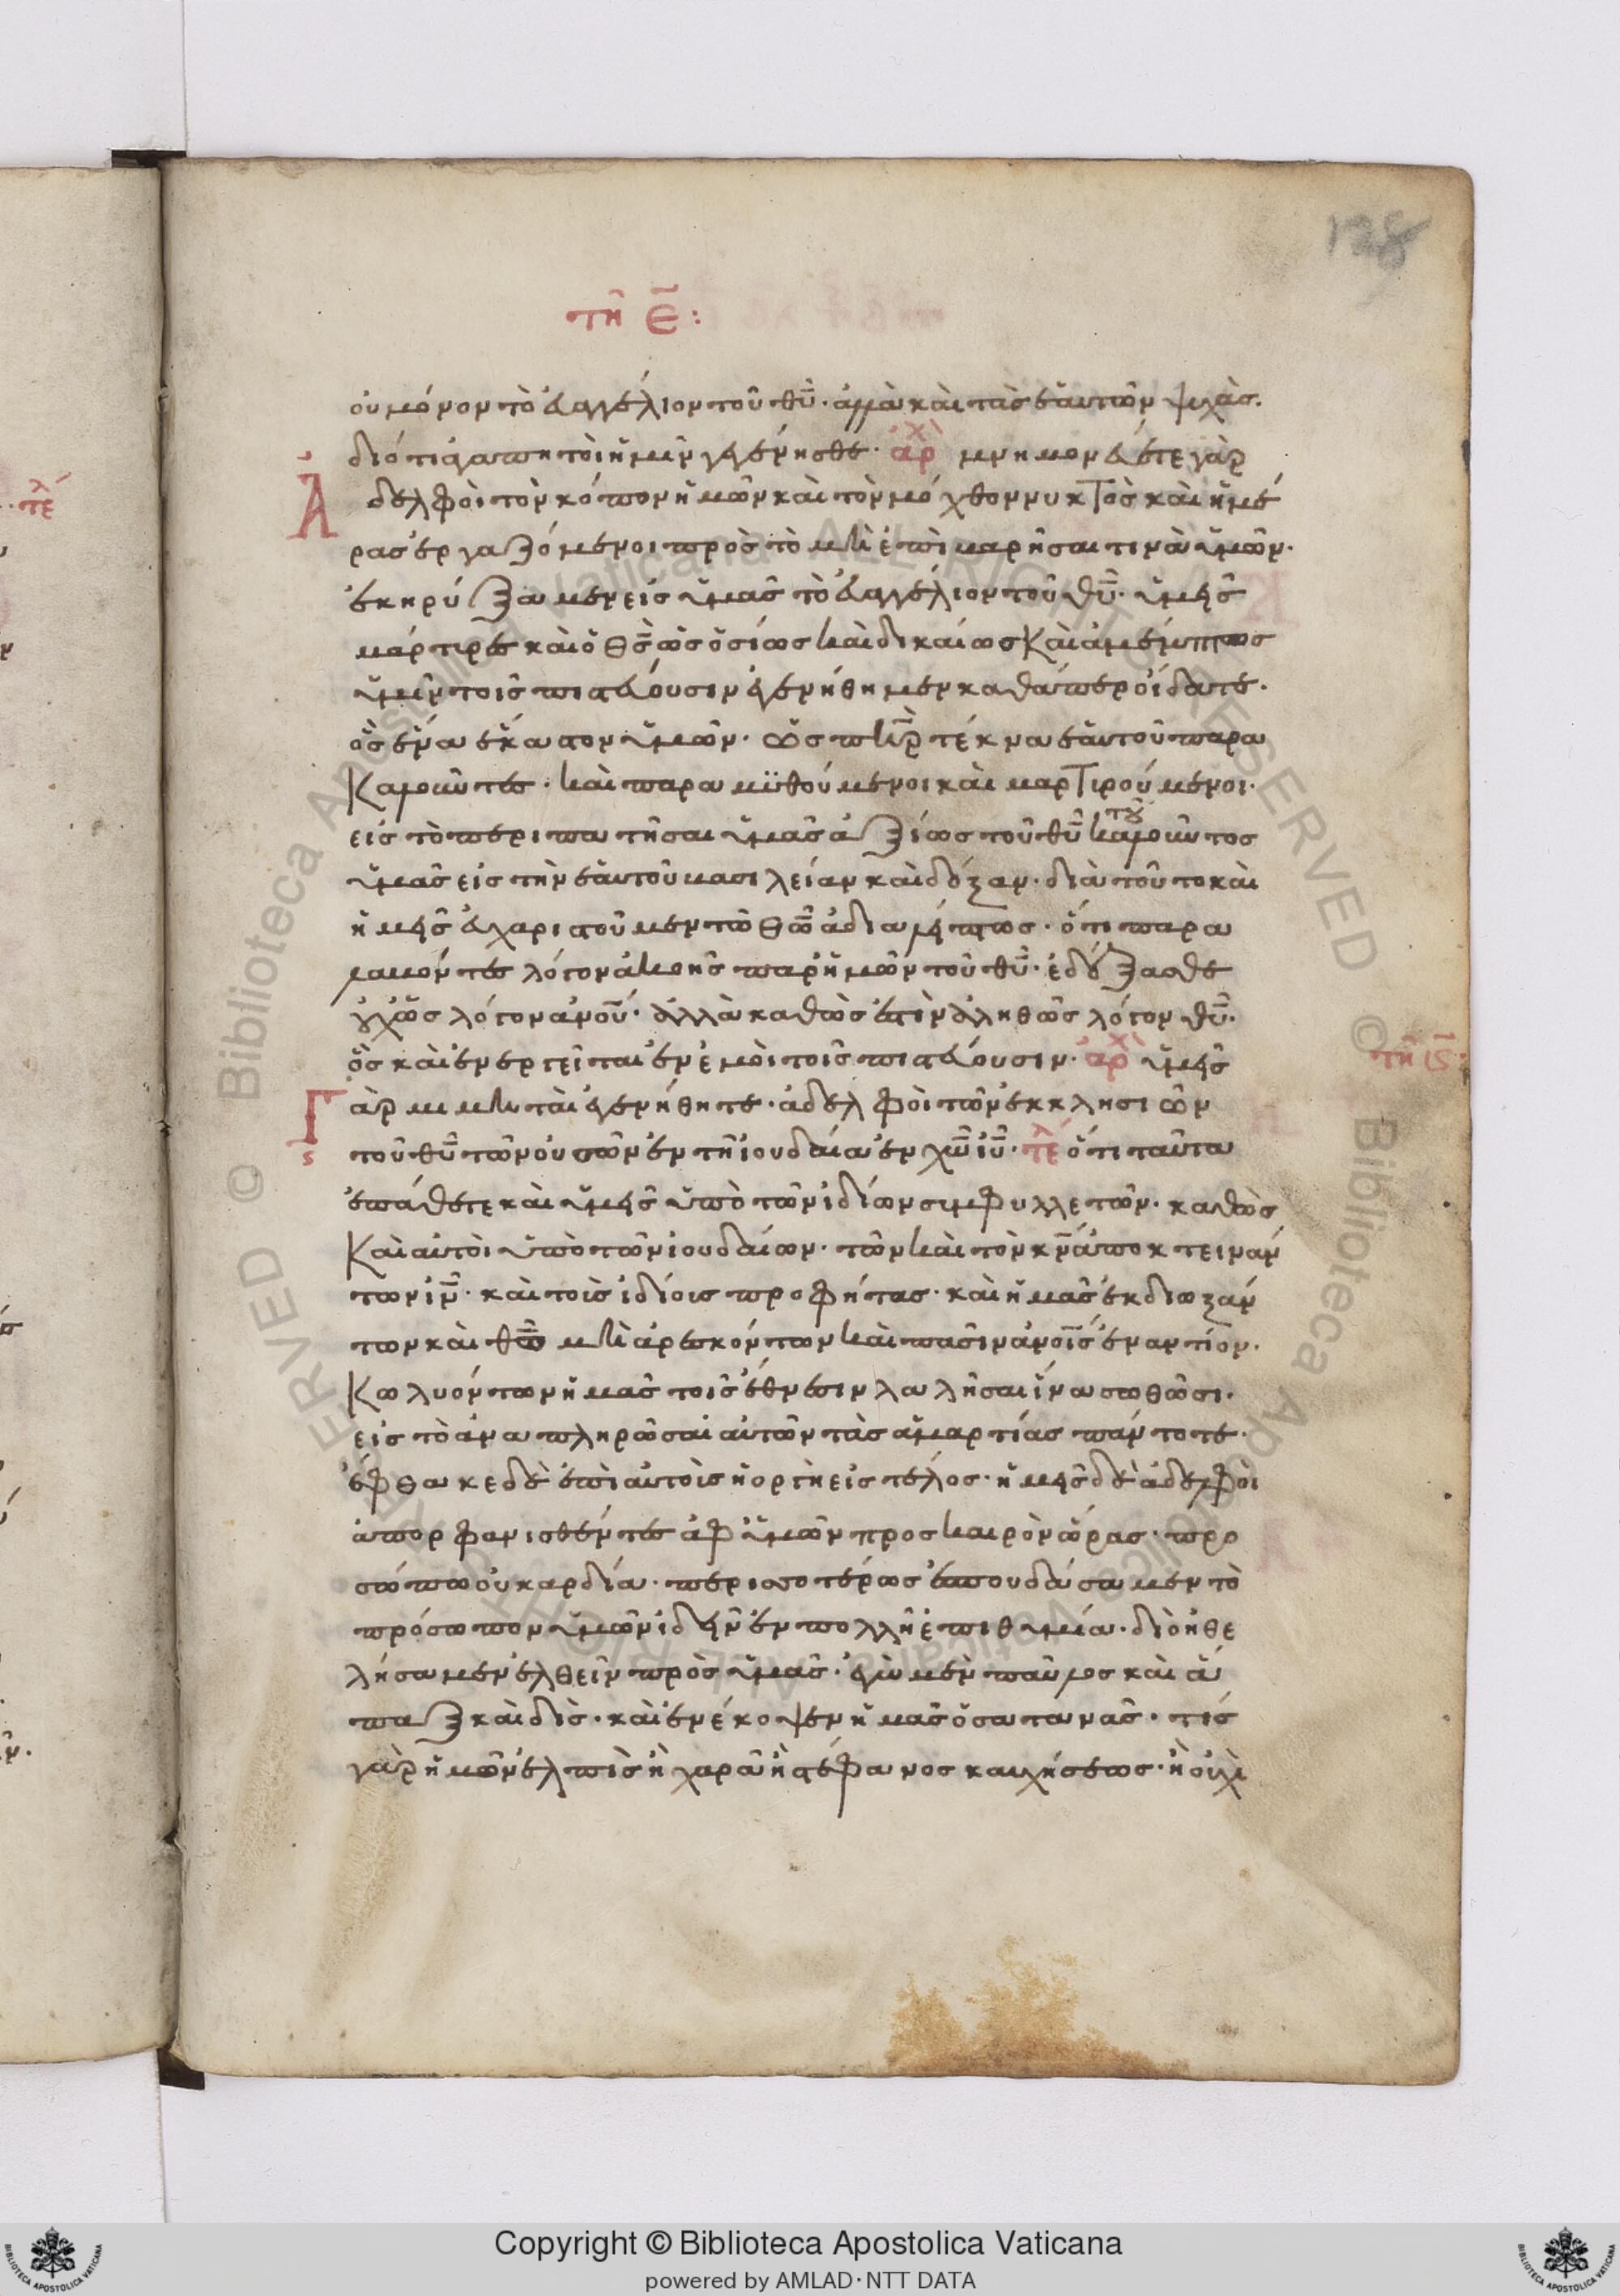 128
τῆ ε̄:
οὐ μόνον τὸ εὐαγγέλιον τοῦ θῦ· ἀλλὰ καὶ τὰς ἑαυτῶν ψυχὰς.
διότι ἀγαπητοὶ ἡμῖν γεγένησθε· ἀρχ μνημονεύετε γὰρ
Ἀδελφοὶ τὸν κόπον ἡμῶν καὶ τὸν μόχθον νυκτὸς καὶ ἡμέ
ρας ἐργαζόμενοι πρὸς τὸ μὴ ἐπιβαρῆσαι τινὰ ὑμῶν.
ἐκηρύξαμεν εἰς ὑμᾶς τὸ εὐαγγέλιον τοῦ θῦ· ὑμεῖς
μάρτιρες καὶ ὁ θς ὡς ὁσίως καὶ δικαίως καὶ ἀμέμπτως
ὑμῖν τοῖς πιστεύουσιν ἐγενήθημεν καθάπερ οἴδατε.
ὃς ἕνα ἕκαστον ὑμῶν· ὡς πὴρ τέκνα ἑαυτοῦ παρα
καλοῦντες· καὶ παραμυθούμενοι καὶ μαρτιρούμενοι.
εἰς τὸ περιπατῆσαι ὑμᾶς ἀξίως τοῦ θῦ τοῦ καλοῦντος
ὑμᾶς εἰς τὴν ἑαυτοῦ βασιλείαν καὶ δόξαν· διὰ τοῦτο καὶ
ἡμεῖς εὐχαριστοῦμεν τῶ θῶ ἀδιαλήπτως· ὅτι παρα
λαβόντες λόγον ἀκοῆς παρ' ἡμῶν τοῦ θῦ· ἐδέξασθε
οὐχ ὡς λόγον ἀνοῦ· ἀλλὰ καθὼς ἐστὶν ἀληθῶς λόγον θῦ.
ὃς καὶ ἐνεργεῖται ἐν ἐμοὶ τοῖς πιστεύουσιν· ἀρχ ὑμεῖς
τῆ ις:
Γὰρ μιμηταὶ ἐγενήθητε· ἀδελφοὶ τῶν ἐκκλησιῶν
τοῦ θῦ τῶν οὐσῶν ἐν τῆ ἰουδαία ἐν χῶ ἰῦ· τέλ ὅτι ταῦτα
ἐπάθετε καὶ ὑμεῖς ὑπὸ τῶν ἰδίων σιμφυλλετῶν· καθὼς
καὶ αὐτοὶ ὑπὸ τῶν ἰουδαίων· τῶν καὶ τὸν κν ἀποκτειναν
των ἰν· καὶ τοῖς ἰδίοις προφήτας· καὶ ἡμᾶς ἐκδιωξαν
των καὶ θῶ μὴ ἀρεσκόντων καὶ πᾶσιν ἀνοῖς ἐναντίον.
κωλυόντων ἡμᾶς τοῖς ἔθνεσιν λαλῆσαι ἵνα σωθῶσι.
εἰς τὸ ἀναπληρῶσαι αὐτῶν τὰς ἁμαρτίας πάντοτε.
ἔφθακε δὲ ἐπὶ αὐτοῖς ἡ ὀργὴ εἰς τέλος· ἡμεῖς δὲ ἀδελφοὶ
ἀπορφανισθέντες ἀφ ὑμῶν προς καιρὸν ὥρας· προ
σώπω οὐ καρδία· περισσοτέρως ἐσπουδάσαμεν τὸ
πρόσωπον ὑμῶν ἰδεῖν ἐν πολλῆ ἐπιθυμία· διὸ ἠθε
λήσαμεν ἐλθεῖν πρὸς ὑμᾶς· ἐγὼ μὲν παῦλος καὶ ἅ
παξ καὶ δὶς· καὶ ἐνέκοψεν ἡμᾶς ὁ σατανᾶς· τίς
γὰρ ἡμῶν ἐλπὶς ἢ χαρὰ ἢ στέφανος καυχήσεως· ἢ οὐχὶ
Copyright © Biblioteca Apostolica Vaticana
powered by AMLAD·NTT DATA